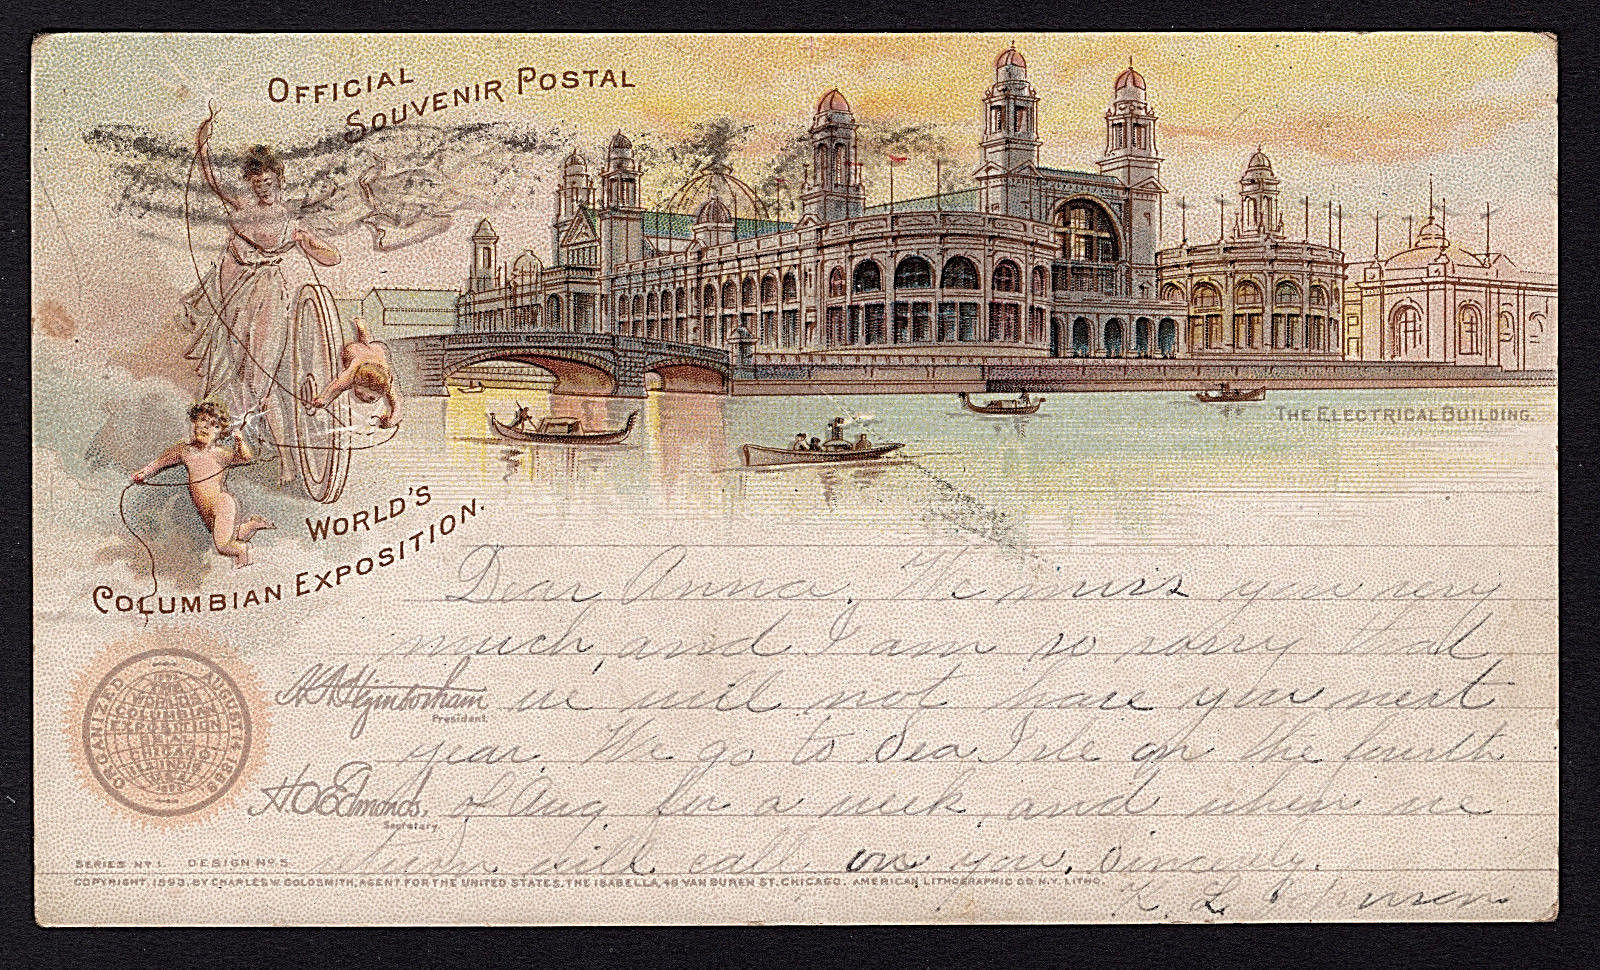 OFFICIAL
SOUVENIR POSTAL
THE ELECTRICAL BUILDING.
WORLD'S
COLUMBIAN EXPOSITION.
Dear Anna, We miss you very
much, and I am so sorry that
we will not have you next
year. We go to Sea Isle on the fourth
of Aug. for a week and when we
return will call on you. Sincerely.
K. L.
H. N. Higinbotham
President.
H. O. Edmonds,
Secretary.
ORGANIZED AUGUST 14 1889
THE
WORLD'S
COLUMBIAN
EXPOSITION
SERIES Nº 1. DESIGN Nº 5
COPYRIGHT, 1893, BY CHARLES W. GOLDSMITH, AGENT FOR THE UNITED STATES, THE ISABELLA, 48 VAN BUREN ST. CHICAGO. AMERICAN LITHOGRAPHIC CO. N.Y. LITHO.